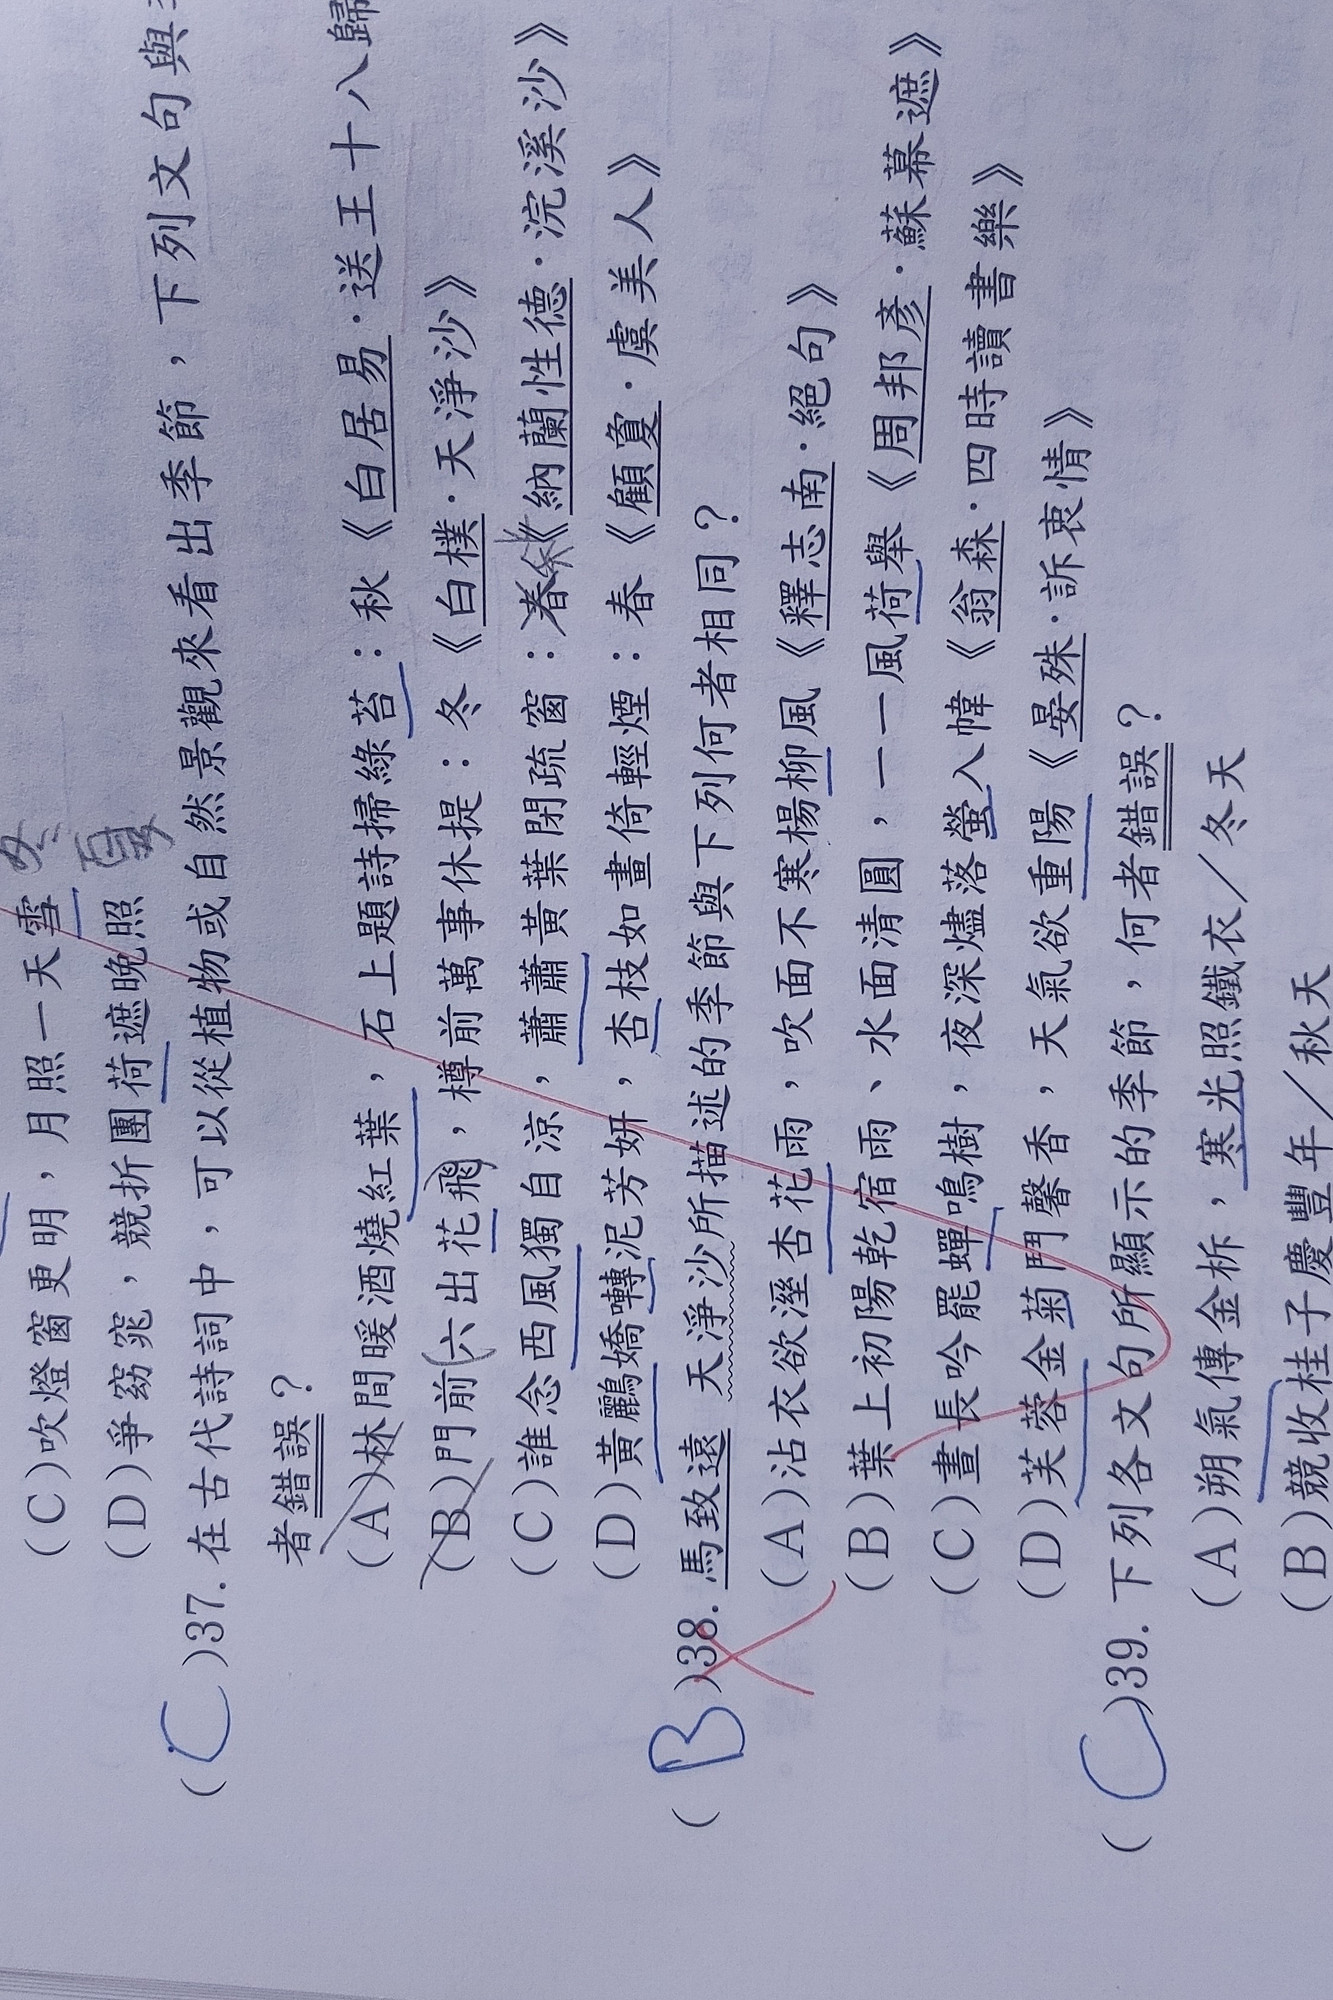 (C)吹燈窗更明，月照一天雪 冬
(D)爭窈窕，競折團荷遮晚照 夏
( C )37. 在古代詩詞中，可以從植物或自然景觀來看出季節，下列文句與
者錯誤？
(A)林間暖酒燒紅葉，石上題詩掃綠苔：秋《白居易．送王十八歸
(B)門前六出花飛，樽前萬事休提：冬《白樸．天淨沙》
(C)誰念西風獨自涼，蕭蕭黃葉閉疏窗：春 秋《納蘭性德．浣溪沙》
(D)黃鸝嬌囀泥芳妍，杏枝如畫倚輕煙：春《顧敻．虞美人》
( B )38. 馬致遠 天淨沙所描述的季節與下列何者相同？
(A)沾衣欲溼杏花雨，吹面不寒楊柳風《釋志南．絕句》
(B)葉上初陽乾宿雨、水面清圓，一一風荷舉《周邦彥．蘇幕遮》
(C)晝長吟罷蟬鳴樹，夜深燼落螢入幃《翁森．四時讀書樂》
(D)芙蓉金菊鬥馨香，天氣欲重陽《晏殊．訴衷情》
( C )39. 下列各文句所顯示的季節，何者錯誤？
(A)朔氣傳金柝，寒光照鐵衣／冬天
(B)競收桂子慶豐年／秋天